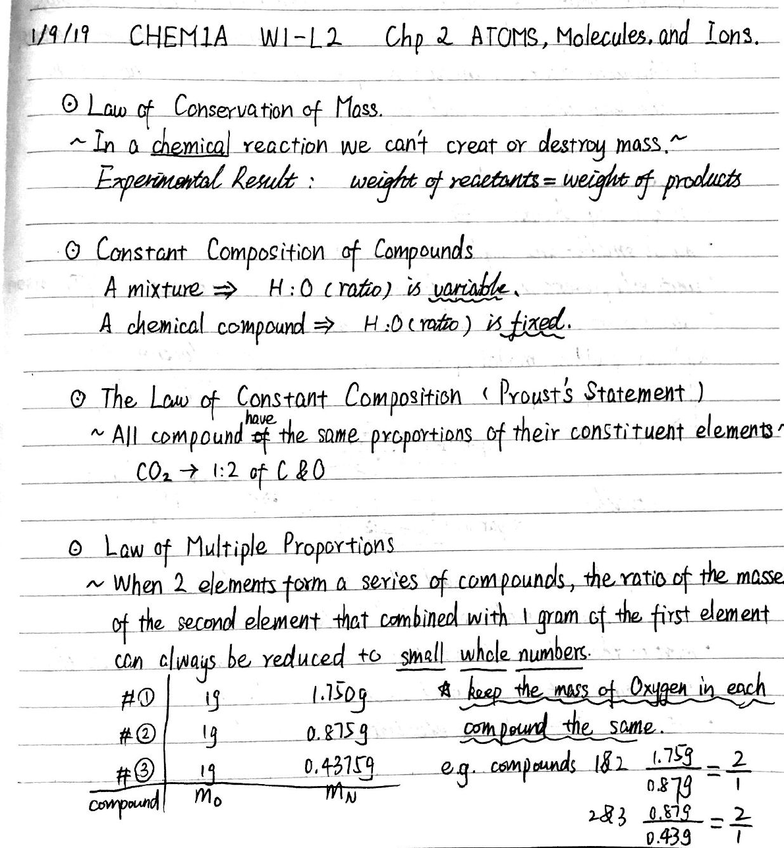 1/9/19 CHEM1A W1-L2 Chp 2 ATOMS, Molecules, and Ions.
⊙ Law of Conservation of Mass.
~ In a chemical reaction we can't creat or destroy mass. ~
Experimental Result : weight of reactants = weight of products
⊙ Constant Composition of Compounds
A mixture ⇒ H:O (ratio) is variable.
A chemical compound ⇒ H:O (ratio) is fixed.
⊙ The Law of Constant Composition (Proust's Statement)
have
~ All compound of the same proportions of their constituent elements ~
CO₂ → 1:2 of C & O
⊙ Law of Multiple Proportions
~ When 2 elements form a series of compounds, the ratio of the masse
of the second element that combined with 1 gram of the first element
can always be reduced to small whole numbers.
#① 1g 1.750g ☆ keep the mass of Oxygen in each
#② 1g 0.875g compound the same.
#③ 1g 0.4375g e.g. compounds 1&2 1.75g/0.87g = 2/1
compound mO mN 2&3 0.87g/0.43g = 2/1